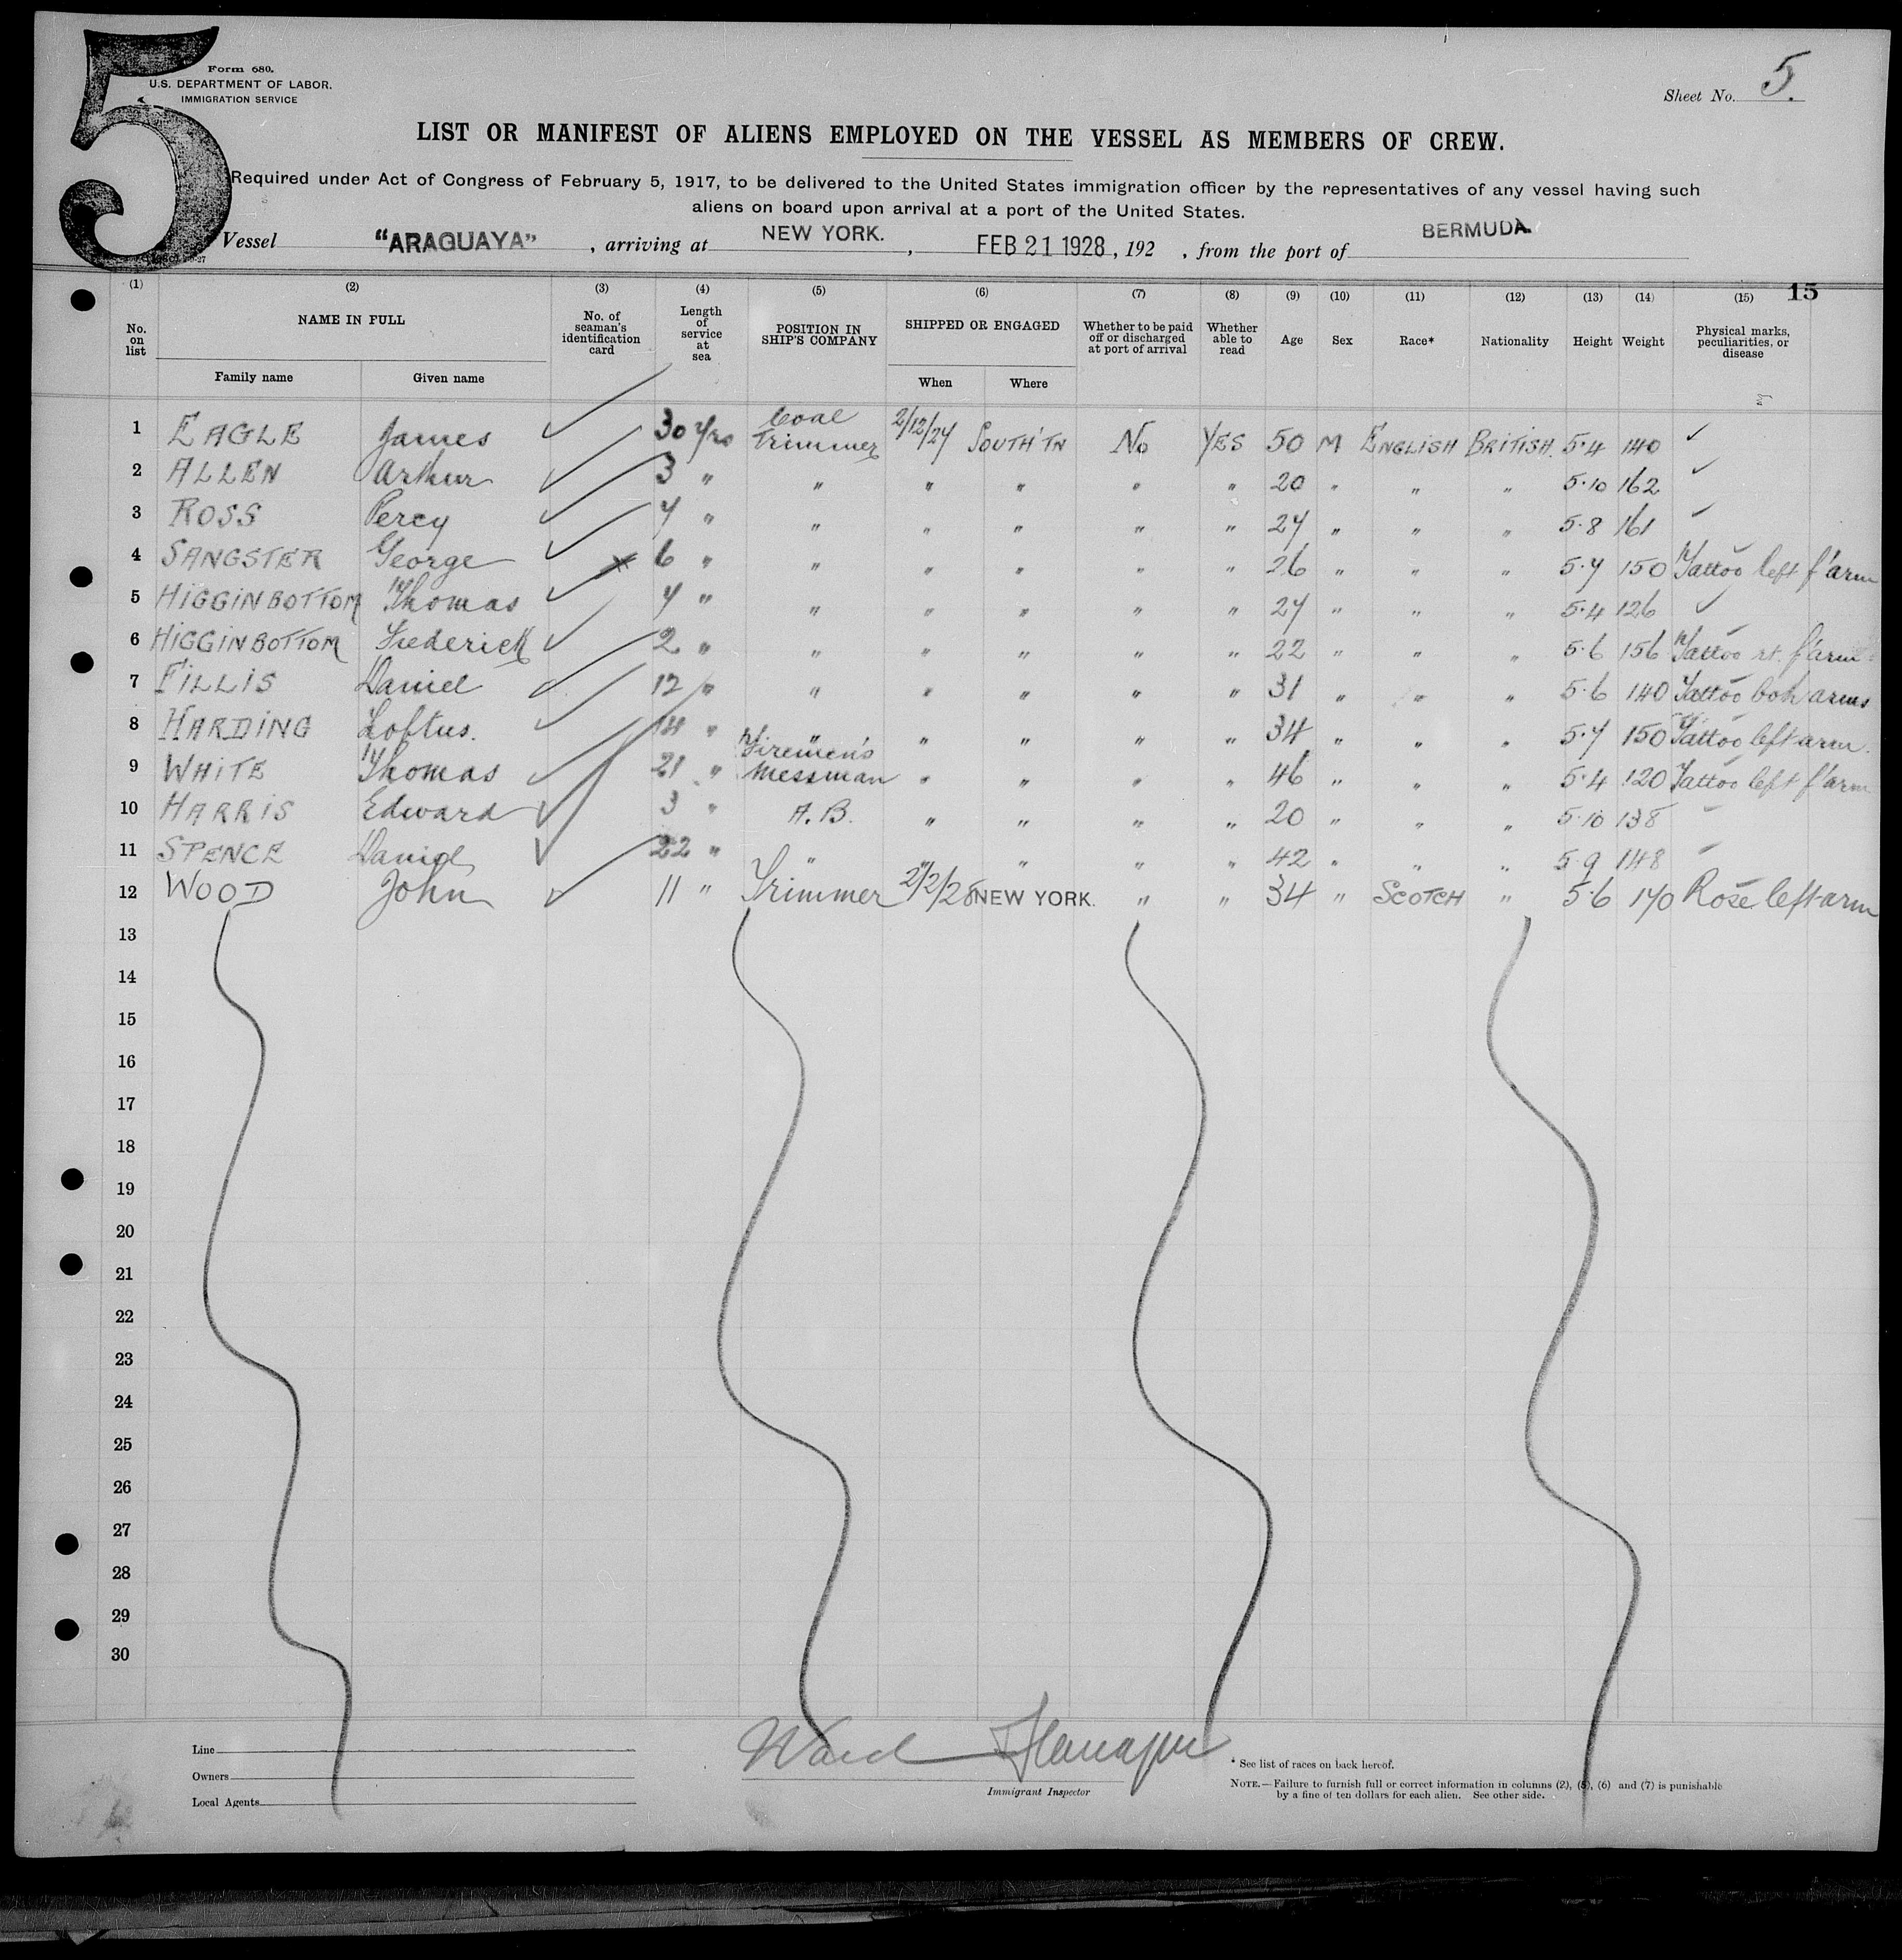 5
Form 680.
U.S. DEPARTMENT OF LABOR.
IMMIGRATION SERVICE
Sheet No. 5.
LIST OR MANIFEST OF ALIENS EMPLOYED ON THE VESSEL AS MEMBERS OF CREW.
Required under Act of Congress of February 5, 1917, to be delivered to the United States immigration officer by the representatives of any vessel having such
aliens on board upon arrival at a port of the United States.
Vessel "ARAGUAYA", arriving at NEW YORK., FEB 21 1928, 192 , from the port of BERMUDA
(1) (2) (3) (4) (5) (6) (7) (8) (9) (10) (11) (12) (13) (14) (15) 15
No. on list NAME IN FULL No. of seaman's identification card Length of service at sea POSITION IN SHIP'S COMPANY SHIPPED OR ENGAGED Whether to be paid off or discharged at port of arrival Whether able to read Age Sex Race* Nationality Height Weight Physical marks, peculiarities, or disease
Family name Given name When Where
1 EAGLE James ✓ 30 yrs Coal Trimmer 2/12/27 SOUTH'TN No YES 50 M ENGLISH BRITISH. 5·4 140 ✓
2 ALLEN Arthur ✓ 3 " " " " " " 20 " " " 5·10 162 ✓
3 ROSS Percy ✓ 7 " " " " " " 27 " " " 5·8 161 ✓
4 SANGSTER George ✓ x 6 " " " " " " 26 " " " 5·7 150 Tattoo left f'arm
5 HIGGINBOTTOM Thomas ✓ 7 " " " " " " 27 " " " 5·4 126 ✓
6 HIGGINBOTTOM Frederick ✓ 2 " " " " " " 22 " " " 5·6 156 Tattoo rt. f'arm
7 FILLIS Daniel ✓ 12 " " " " " " 31 " " " 5·6 140 Tattoo both arms
8 HARDING Loftus. ✓ 14 " " " " " " 34 " " " 5·7 150 Tattoo left arm.
9 WHITE Thomas ✓ 21 " Firemen's Messman " " " " 46 " " " 5·4 120 Tattoo left f'arm
10 HARRIS Edward ✓ 3 " A.B. " " " " 20 " " " 5·10 138
11 SPENCE Daniel ✓ 22 " " " " " " 42 " " " 5·9 148
12 WOOD John ✓ 11 " Trimmer 2/2/28 NEW YORK. " " 34 " SCOTCH " 5·6 170 Rose left arm
13
14
15
16
17
18
19
20
21
22
23
24
25
26
27
28
29
30
Line
Owners
Local Agents
Immigrant Inspector
* See list of races on back hereof.
NOTE.—Failure to furnish full or correct information in columns (2), (5), (6) and (7) is punishable
by a fine of ten dollars for each alien. See other side.